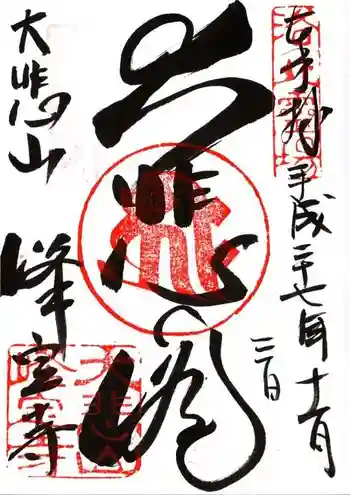 奉拝
平成二十七年十一月
三日
大悲閣
大悲山
峰定寺